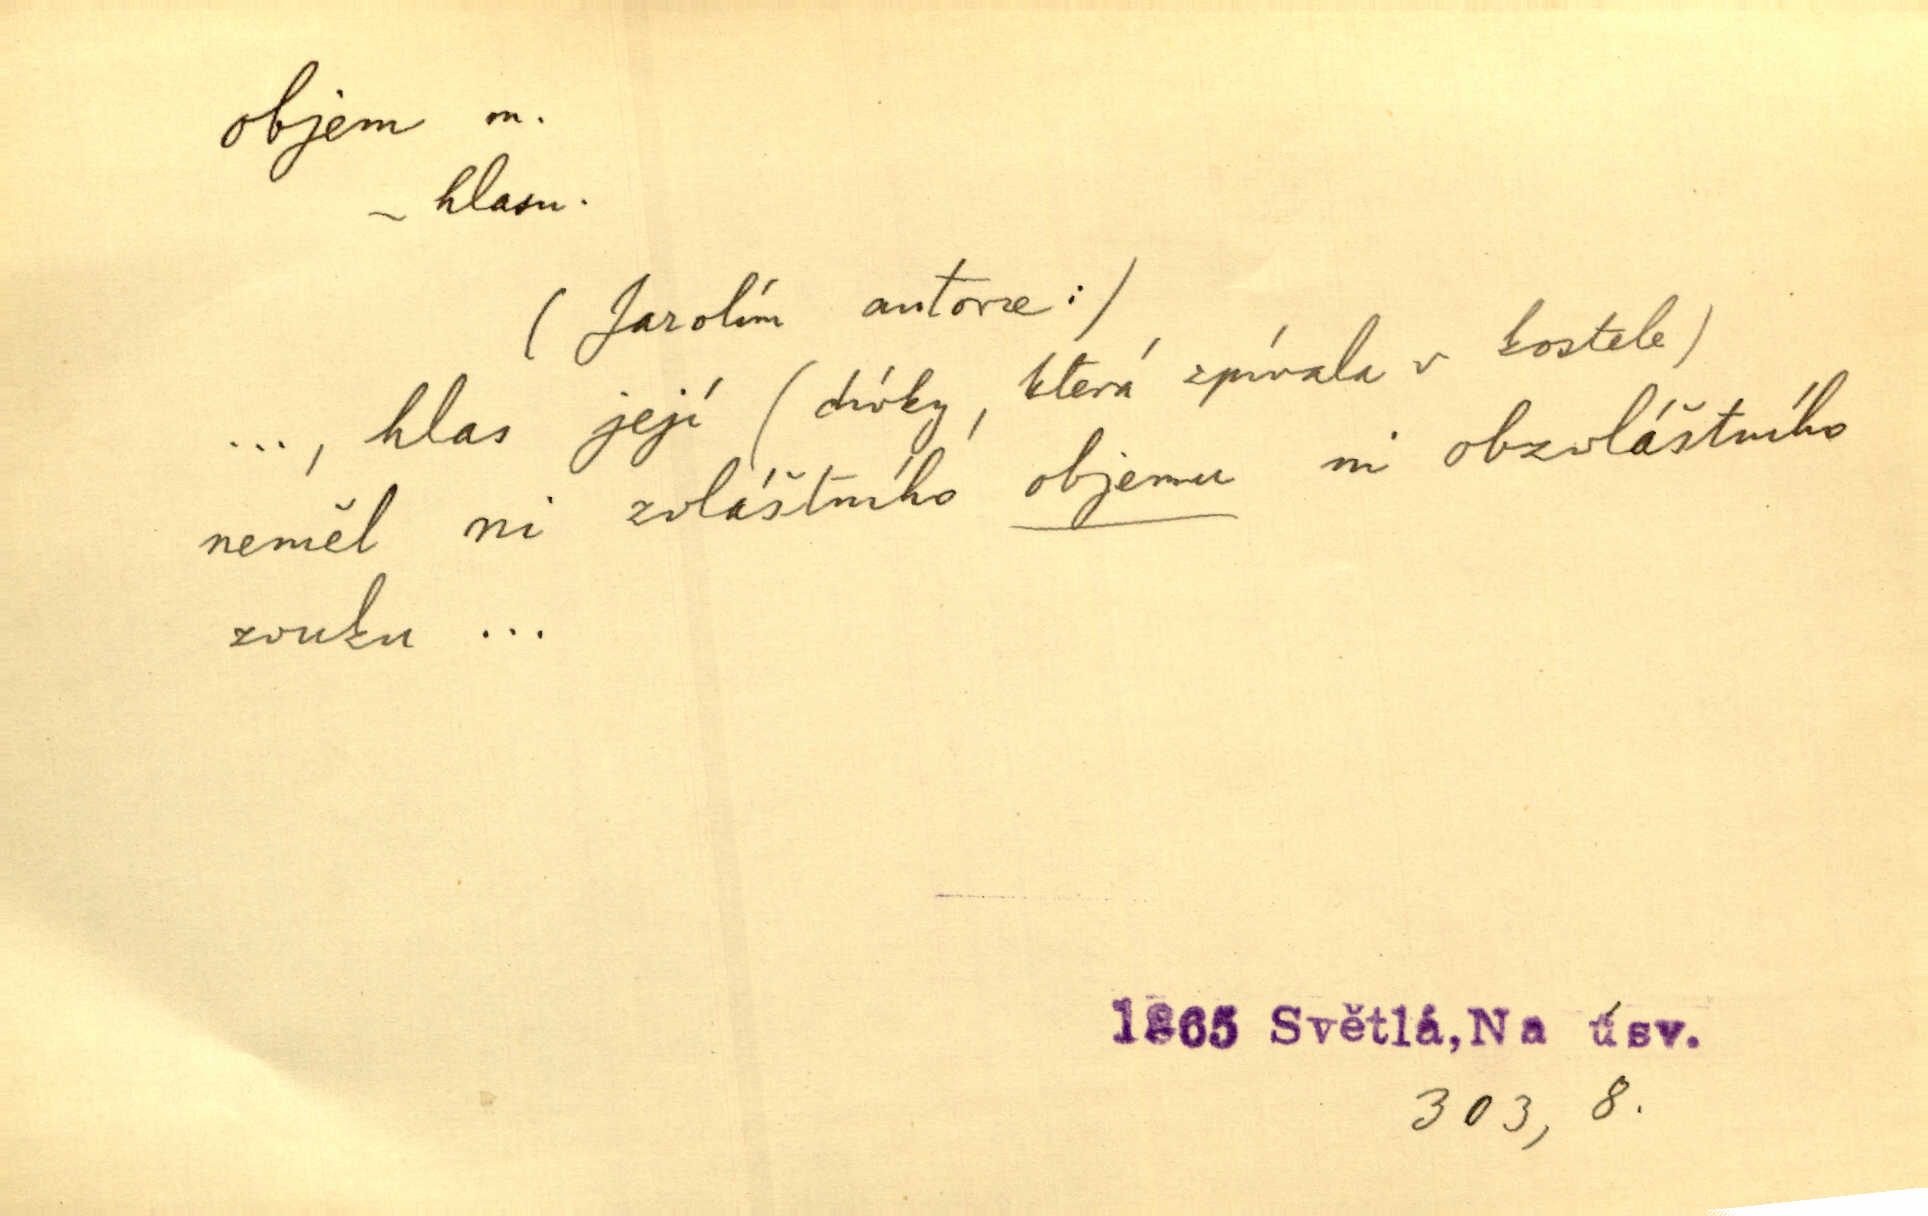 objem m.
~ hlasu.
(Jarolím autorce:)
..., hlas její (dívky, která zpívala v kostele)
neměl ni zvláštního objemu ni obzvláštního
zvuku ...
1865 Světlá, Na úsv.
303, 8.